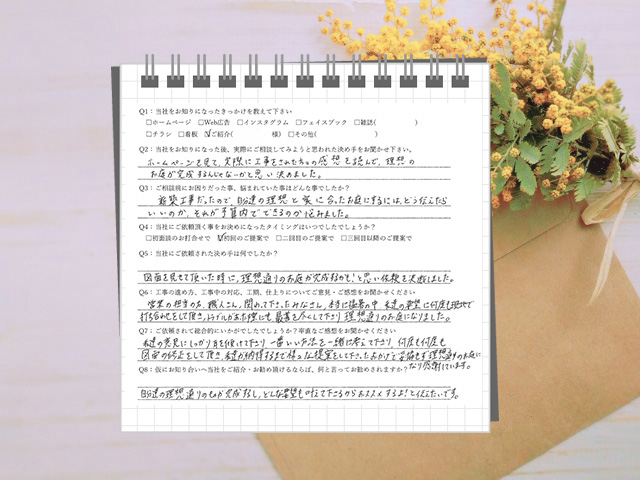 Q1：当社をお知りになったきっかけを教えて下さい
□ホームページ □Web広告 □インスタグラム □フェイスブック □雑誌( )
□チラシ □看板 ☑ご紹介( 様) □その他( )
Q2：当社をお知りになった後、実際にご相談してみようと思われた決め手をお聞かせ下さい。
ホームページを見て、実際に工事をされた方の感想を読んで、理想の
お庭が完成するんじゃないかと思い決めました。
Q3：ご相談前にお困りだった事、悩まれていた事はどんな事でしたか？
新築工事だったので、自分達の理想と家に合ったお庭にするには、どうしたら
いいのか、それが予算内でできるのか悩みました。
Q4：当社にご依頼頂く事をお決めになったタイミングはいつでしたでしょうか？
□初面談のお打合せで ☑初回のご提案で □二回目のご提案で □三回目以降のご提案で
Q5：当社にご依頼された決め手は何でしたか？
図面を見せて頂いた時に、理想通りのお庭が完成するかも！と思い依頼を決断しました。
Q6：工事の進め方、工事中の対応、工期、仕上りについてご意見・ご感想をお聞かせください
営業の担当の方、職人さん、関わって下さったみなさん、本当に猛暑の中 私達の要望に何度も現地で
打ち合わせをして頂き、トラブルがあった際にも 最善を尽くして下さり 理想通りのお庭になりました。
Q7：ご依頼されて総合的にいかがでしたでしょうか？率直なご感想をお聞かせください
私達の意見にしっかり耳を傾けて下さり 一番いい方法を一緒に考えて下さり、何度も何度も
図面の修正をして頂き、私達が納得するまで様々な提案をして下さったおかげで 理想通りのお庭に
なり感謝しています。
Q8：仮にお知り合いへ当社をご紹介・お勧め頂けるならば、何と言ってお勧めされますか？
自分達の理想通りのものが完成するし、どんな要望も叶えて下さるからおススメするよ！と伝えたいです。